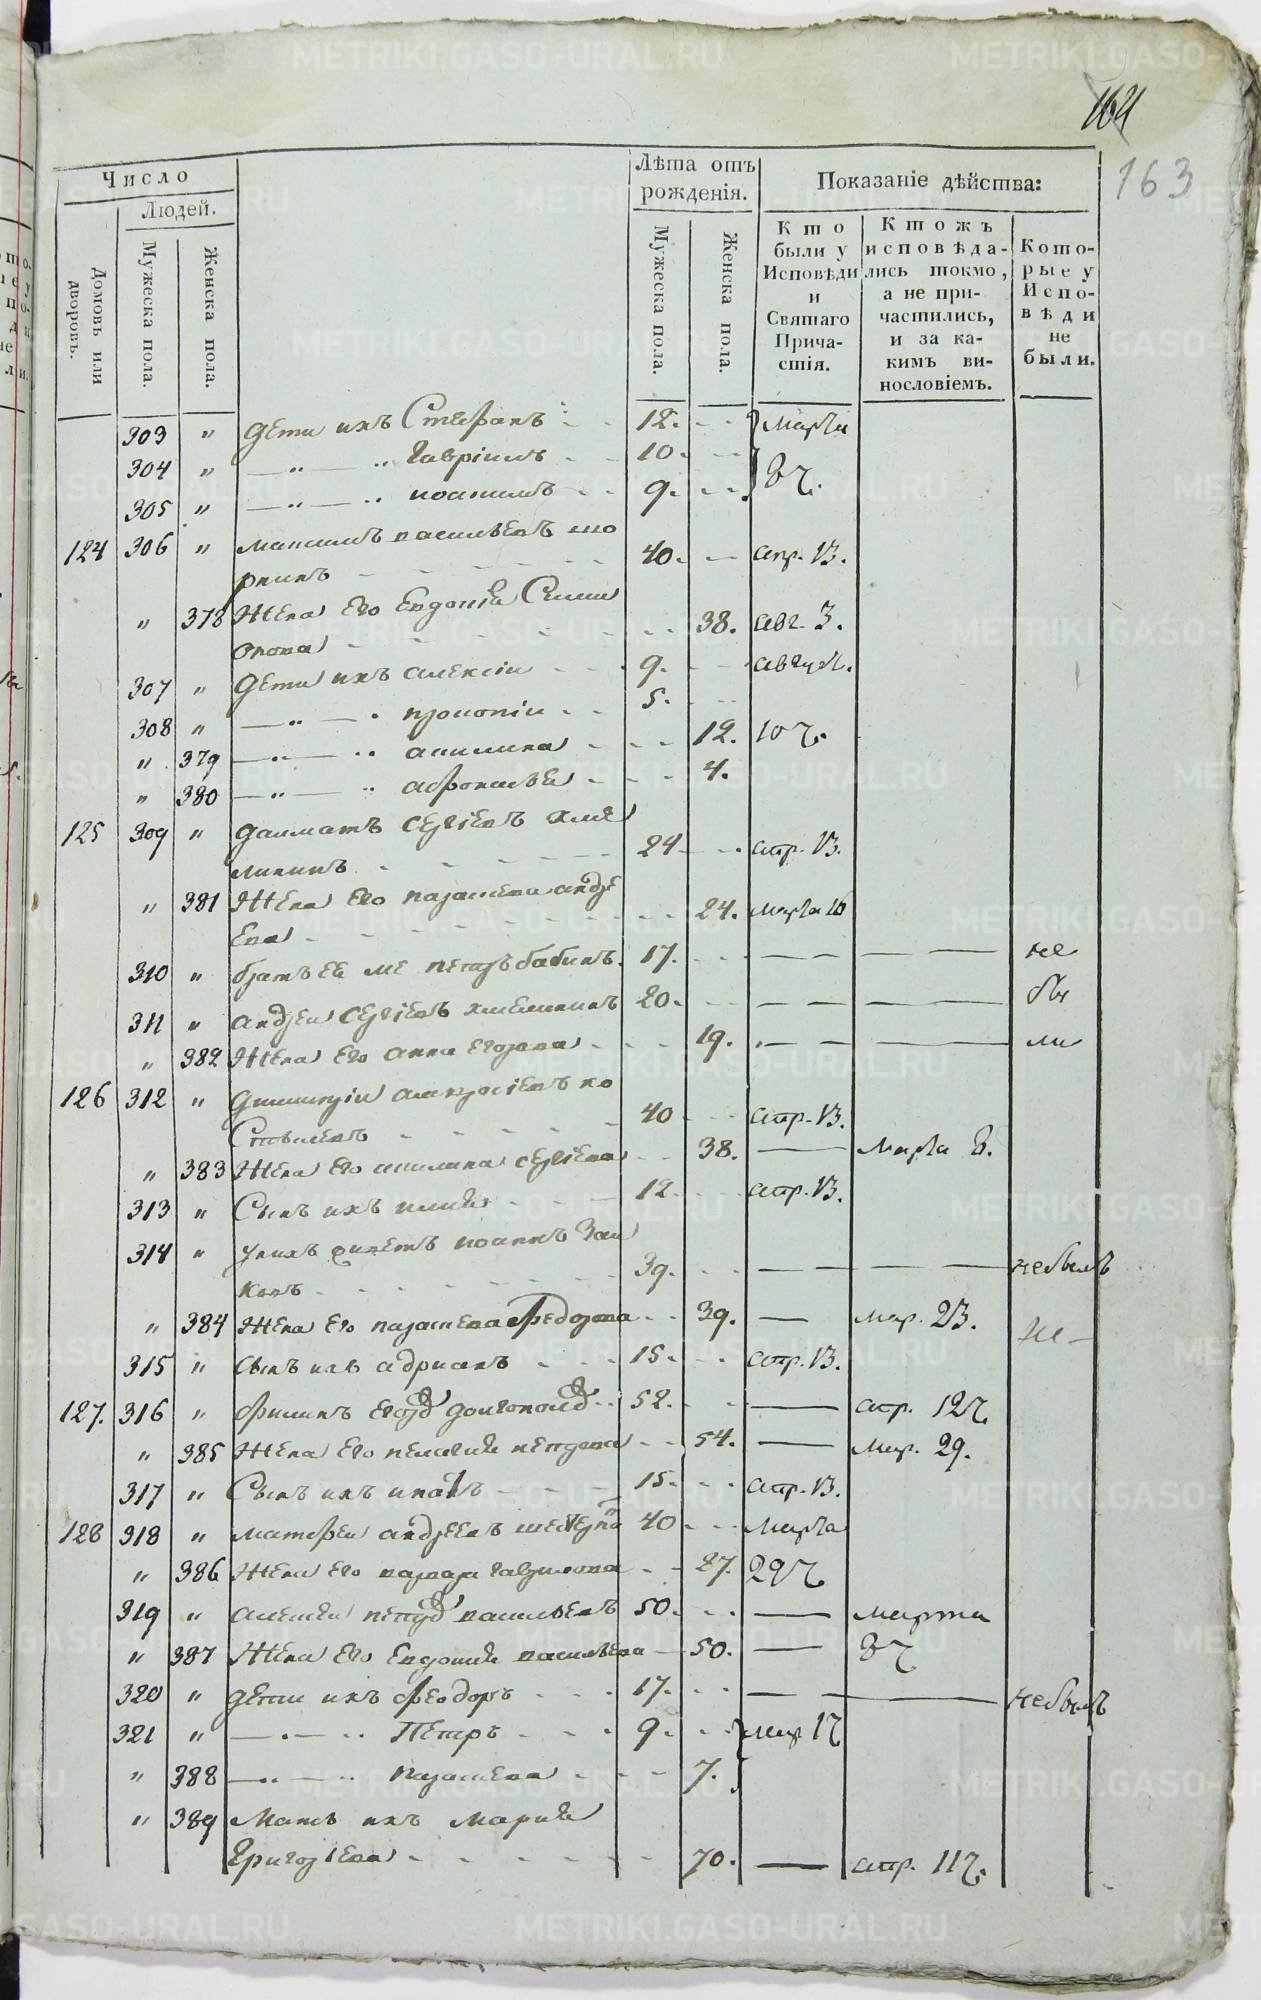 164
163
Число
Людей.
Домовъ или дворовъ.
Мужеска пола.
Женска пола.
Лѣта отъ рожденія.
Мужеска пола.
Женска пола.
Показаніе дѣйства:
Кто были у Исповѣди и Святаго Причастія.
Ктожъ исповѣдались токмо, а не причастились, и за какимъ винословіемъ.
Которые у Исповѣди не были.
303 " дети ихъ Стефанъ 12. Марта
304 " — " — " Гавріилъ 10. 8 ч.
305 " — " — " 9.
124 306 " васильевъ 40. апр. 13.
" 378 Жена его Евдокіа Сими
онова 38. авг. 3.
307 " дети ихъ алексіи 9. август.
308 " — " — " прокопіи 5.
" 379 — " — " акилина 12. 10 ч.
" 380 — " — " 4.
125 309 " далматъ сергіевъ хме
лининъ 24 апр. 13.
" 381 Жена его параскева андре
ева 24. марта 16
310 " братъ ее петръ бабинъ. 17. — — не
311 " андреи сергіевъ 20. — — бы
" 382 Жена его анна егорова 19. — — ли
126 312 " димитріи амвросіевъ ко
40 апр. 13.
" 383 Жена его акилина сергіева 38. — Марта 8.
313 " Сынъ ихъ илиа 12 апр. 13.
314 " у нихъ иоаннъ Заи
ковъ 39. — — небылъ
" 384 Жена его параскева Федорова 39. — мар. 23. не —
315 " сынъ ихъ адрианъ 15. апр. 13.
127. 316 " филипъ 52. — апр. 12 ч.
" 385 Жена его пелагиа петрова 54. — Мар. 29.
317 " Сынъ ихъ 15. апр. 13.
128 318 " матфеи андреевъ 40 Марта
" 386 Жена его варвара гаврилова 27. 29 ч
319 " алексеи васильевъ 50. — марта
" 387 Жена его Евдокиа васильева 50. — 8 ч
320 " дети ихъ феодоръ 17. — — небылъ
321 " — " — " Петръ 9. мар 17
" 388 — " — " параскева 7.
" 389 Мать ихъ Мариа
Григоріева 70. — апр. 11 ч.
METRIKI.GASO-URAL.RU